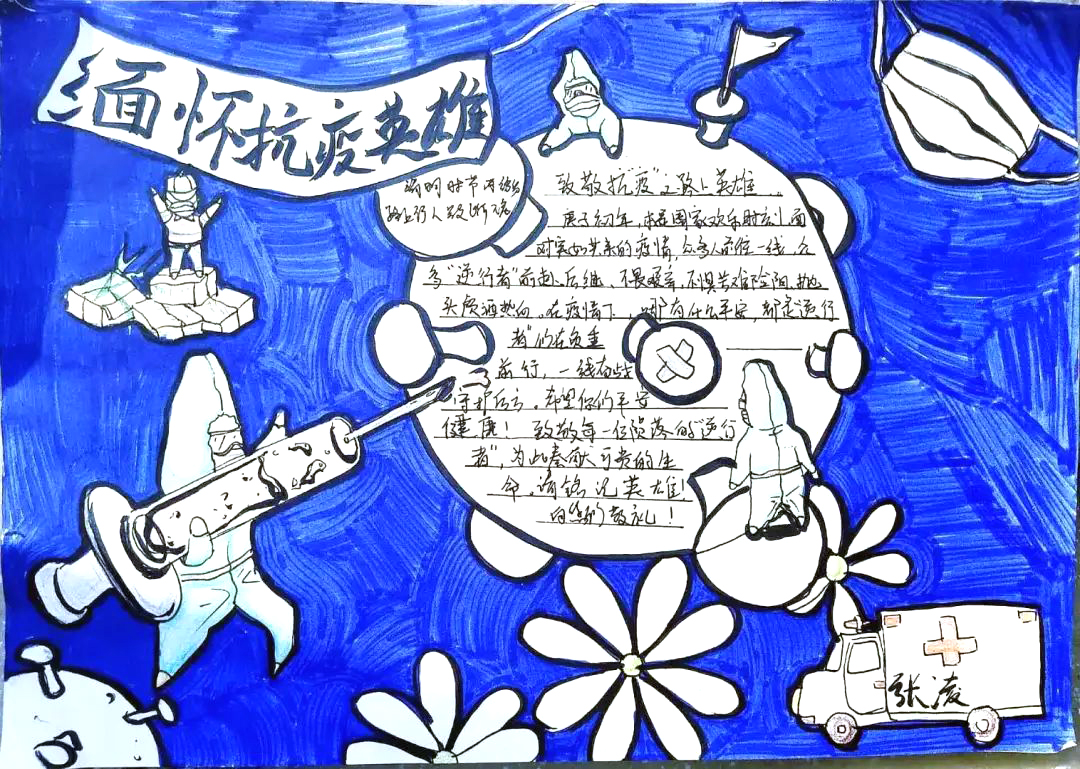 缅怀抗疫英雄
清明时节雨纷纷
路上行人欲断魂
致敬"抗疫"之路上英雄...
庚子初年,本是国家欢乐时刻,面
对突如其来的疫情,众多人前往一线,众
多"逆行者"前赴后继、不畏艰辛,不惧苦难险阻,抛
头颅洒热血。在疫情下,哪有什么平安,都是逆行
者"们在负重
前行,一线有战
守护后方。希望你们平安
健康!致敬每一位陨落的"逆行
者",为此奉献可贵的生
命,请铭记英雄!
向您们敬礼!
张凌